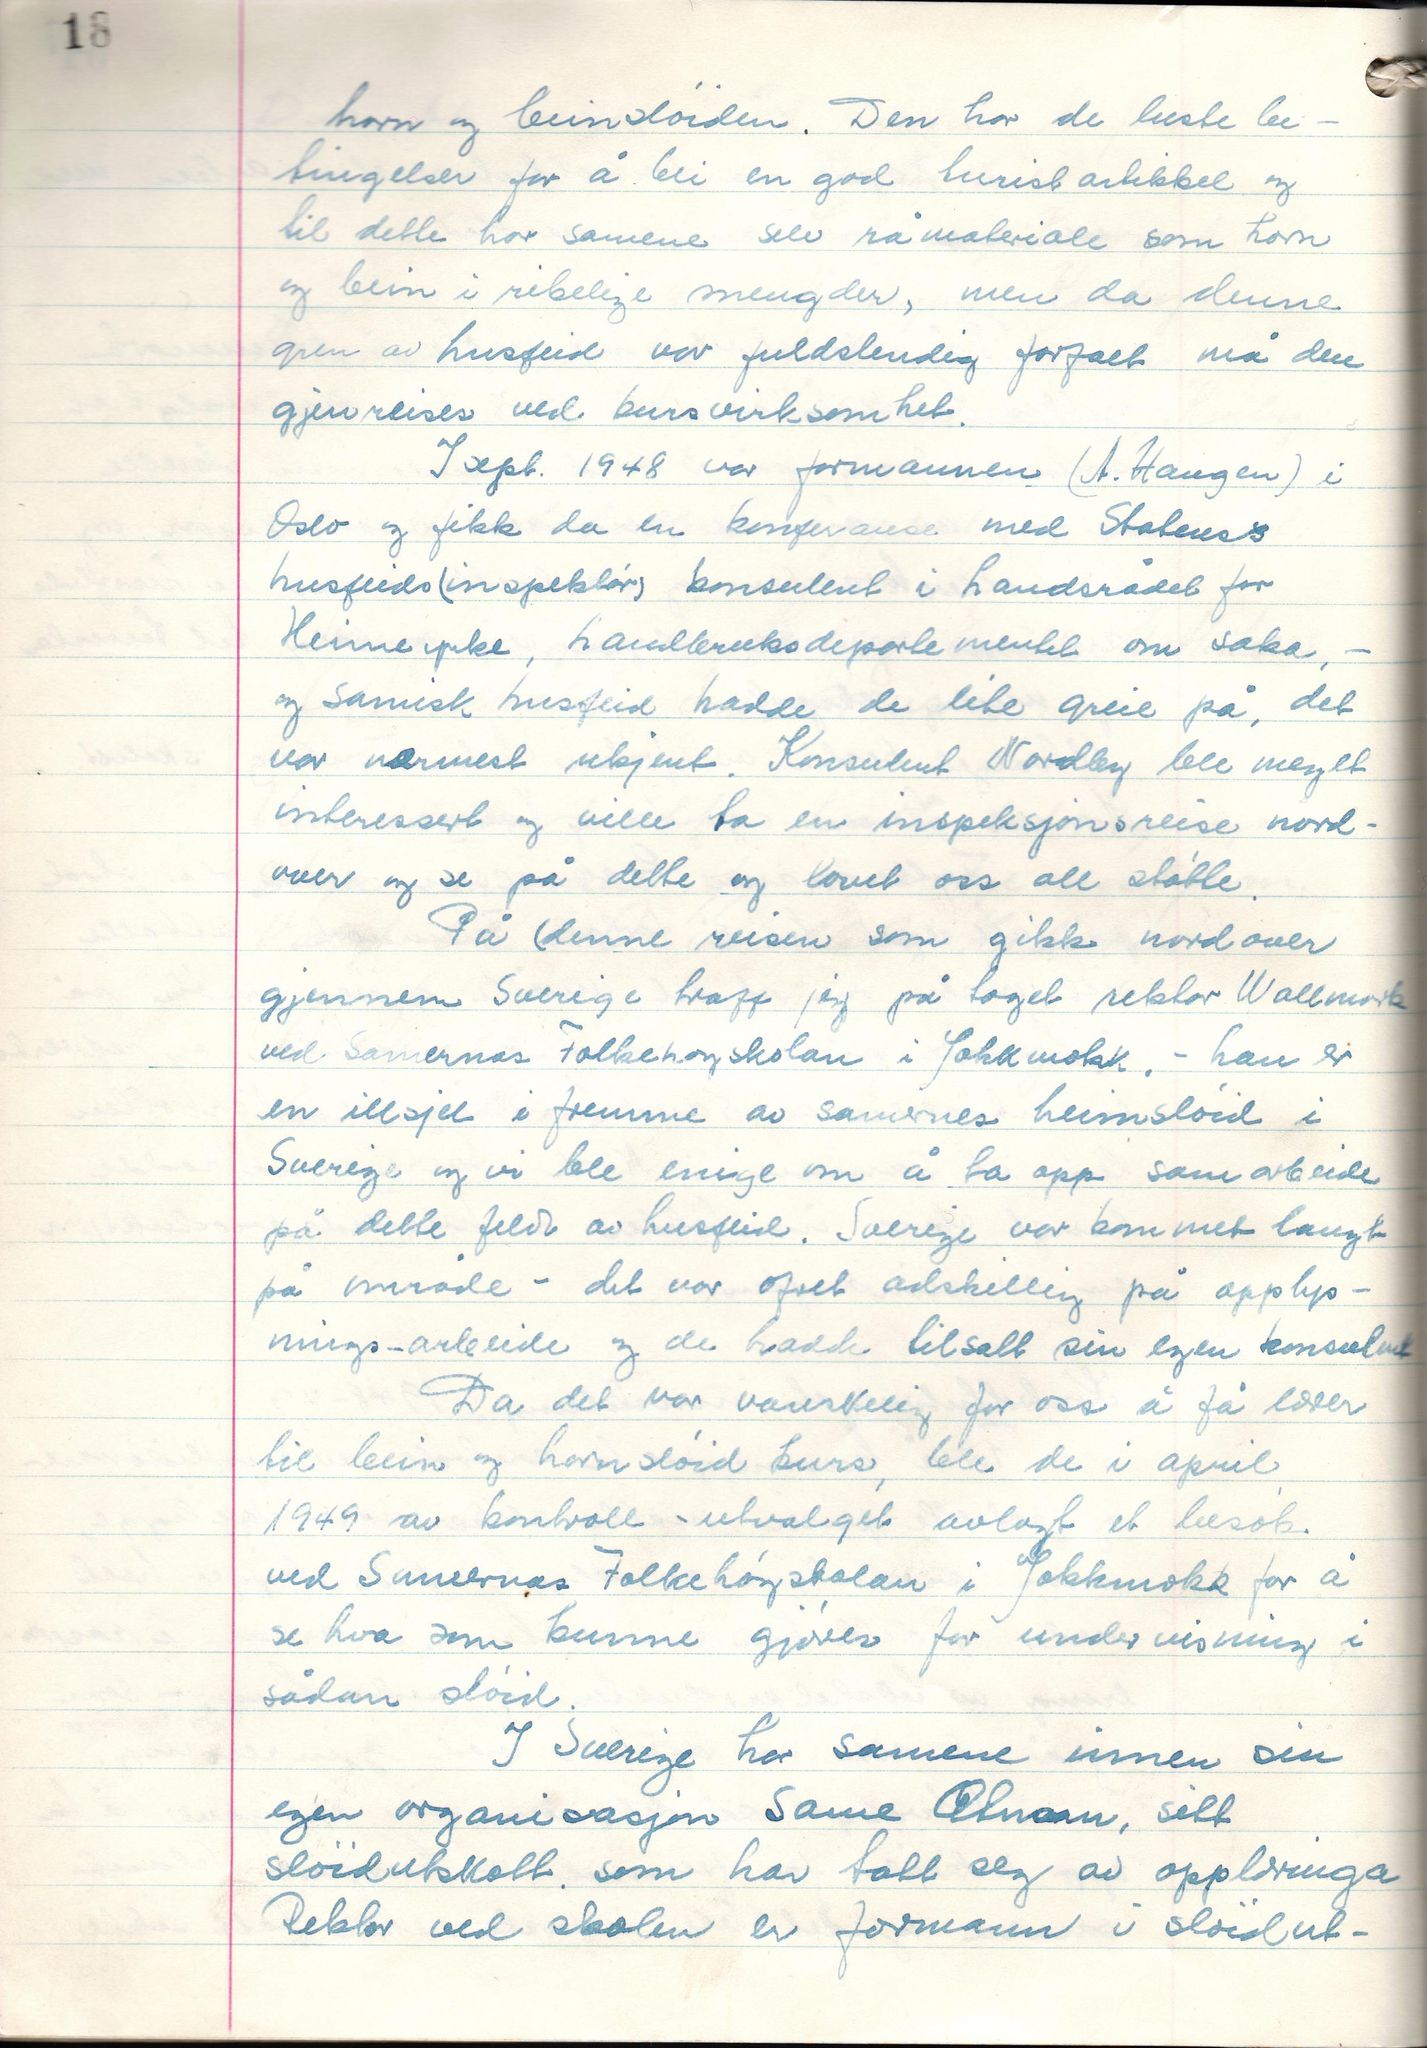 18
horn og beinslöiden. Den har de beste be-
tingelser for å bli en god turistartikkel og
til dette har samene selv råmateriale som horn
og bein i rikelige mengder, men da denne
gren av husflid var fuldstendig forfalt må den
gjenreises ved kursvirksomhet.
I sept. 1948 var formannen (A. Haugen) i
Oslo og fikk da en konferanse med Statens
husflids(inspektör) konsulent i Landsrådet for
Heimeyrke, Landbruksdepartementet om saka, -
og samisk husflid hadde de lite greie på, det
var nærmest ukjent. Konsulent Nordby ble meget
interessert og ville ta en inspeksjonsreise nord-
over og se på dette og lovet oss all stötte.
På (denne reisen som gikk nordover
gjennem Sverige traff jeg på toget rektor Wallmark
ved Samernas Folkehögskolan i Jokkmokk, - han er
en illsjel i fremme av samernes heimslöid i
Sverige og vi ble enige om å ta opp samarbeide
på dette felt av husflid. Sverige var kommet langt
på område - det var ofret adskillig på opplys-
nings-arbeide og de hadde tilsatt sin egen konsulent
Da det var vanskelig for oss å få lærer
til bein og hornslöid kurs, ble de i april
1949 av kontroll-utvalget avlagt et besök
ved Samernas Folkehögskolan i Jokkmokk for å
se hva som kunne gjöres for undervisning i
sådan slöid.
I Sverige har samene innen sin
egen organisasjon Same Ätnam, sitt
slöidutskott som har tatt seg av opplæringa
Rektor ved skolen er formann i slöidut-